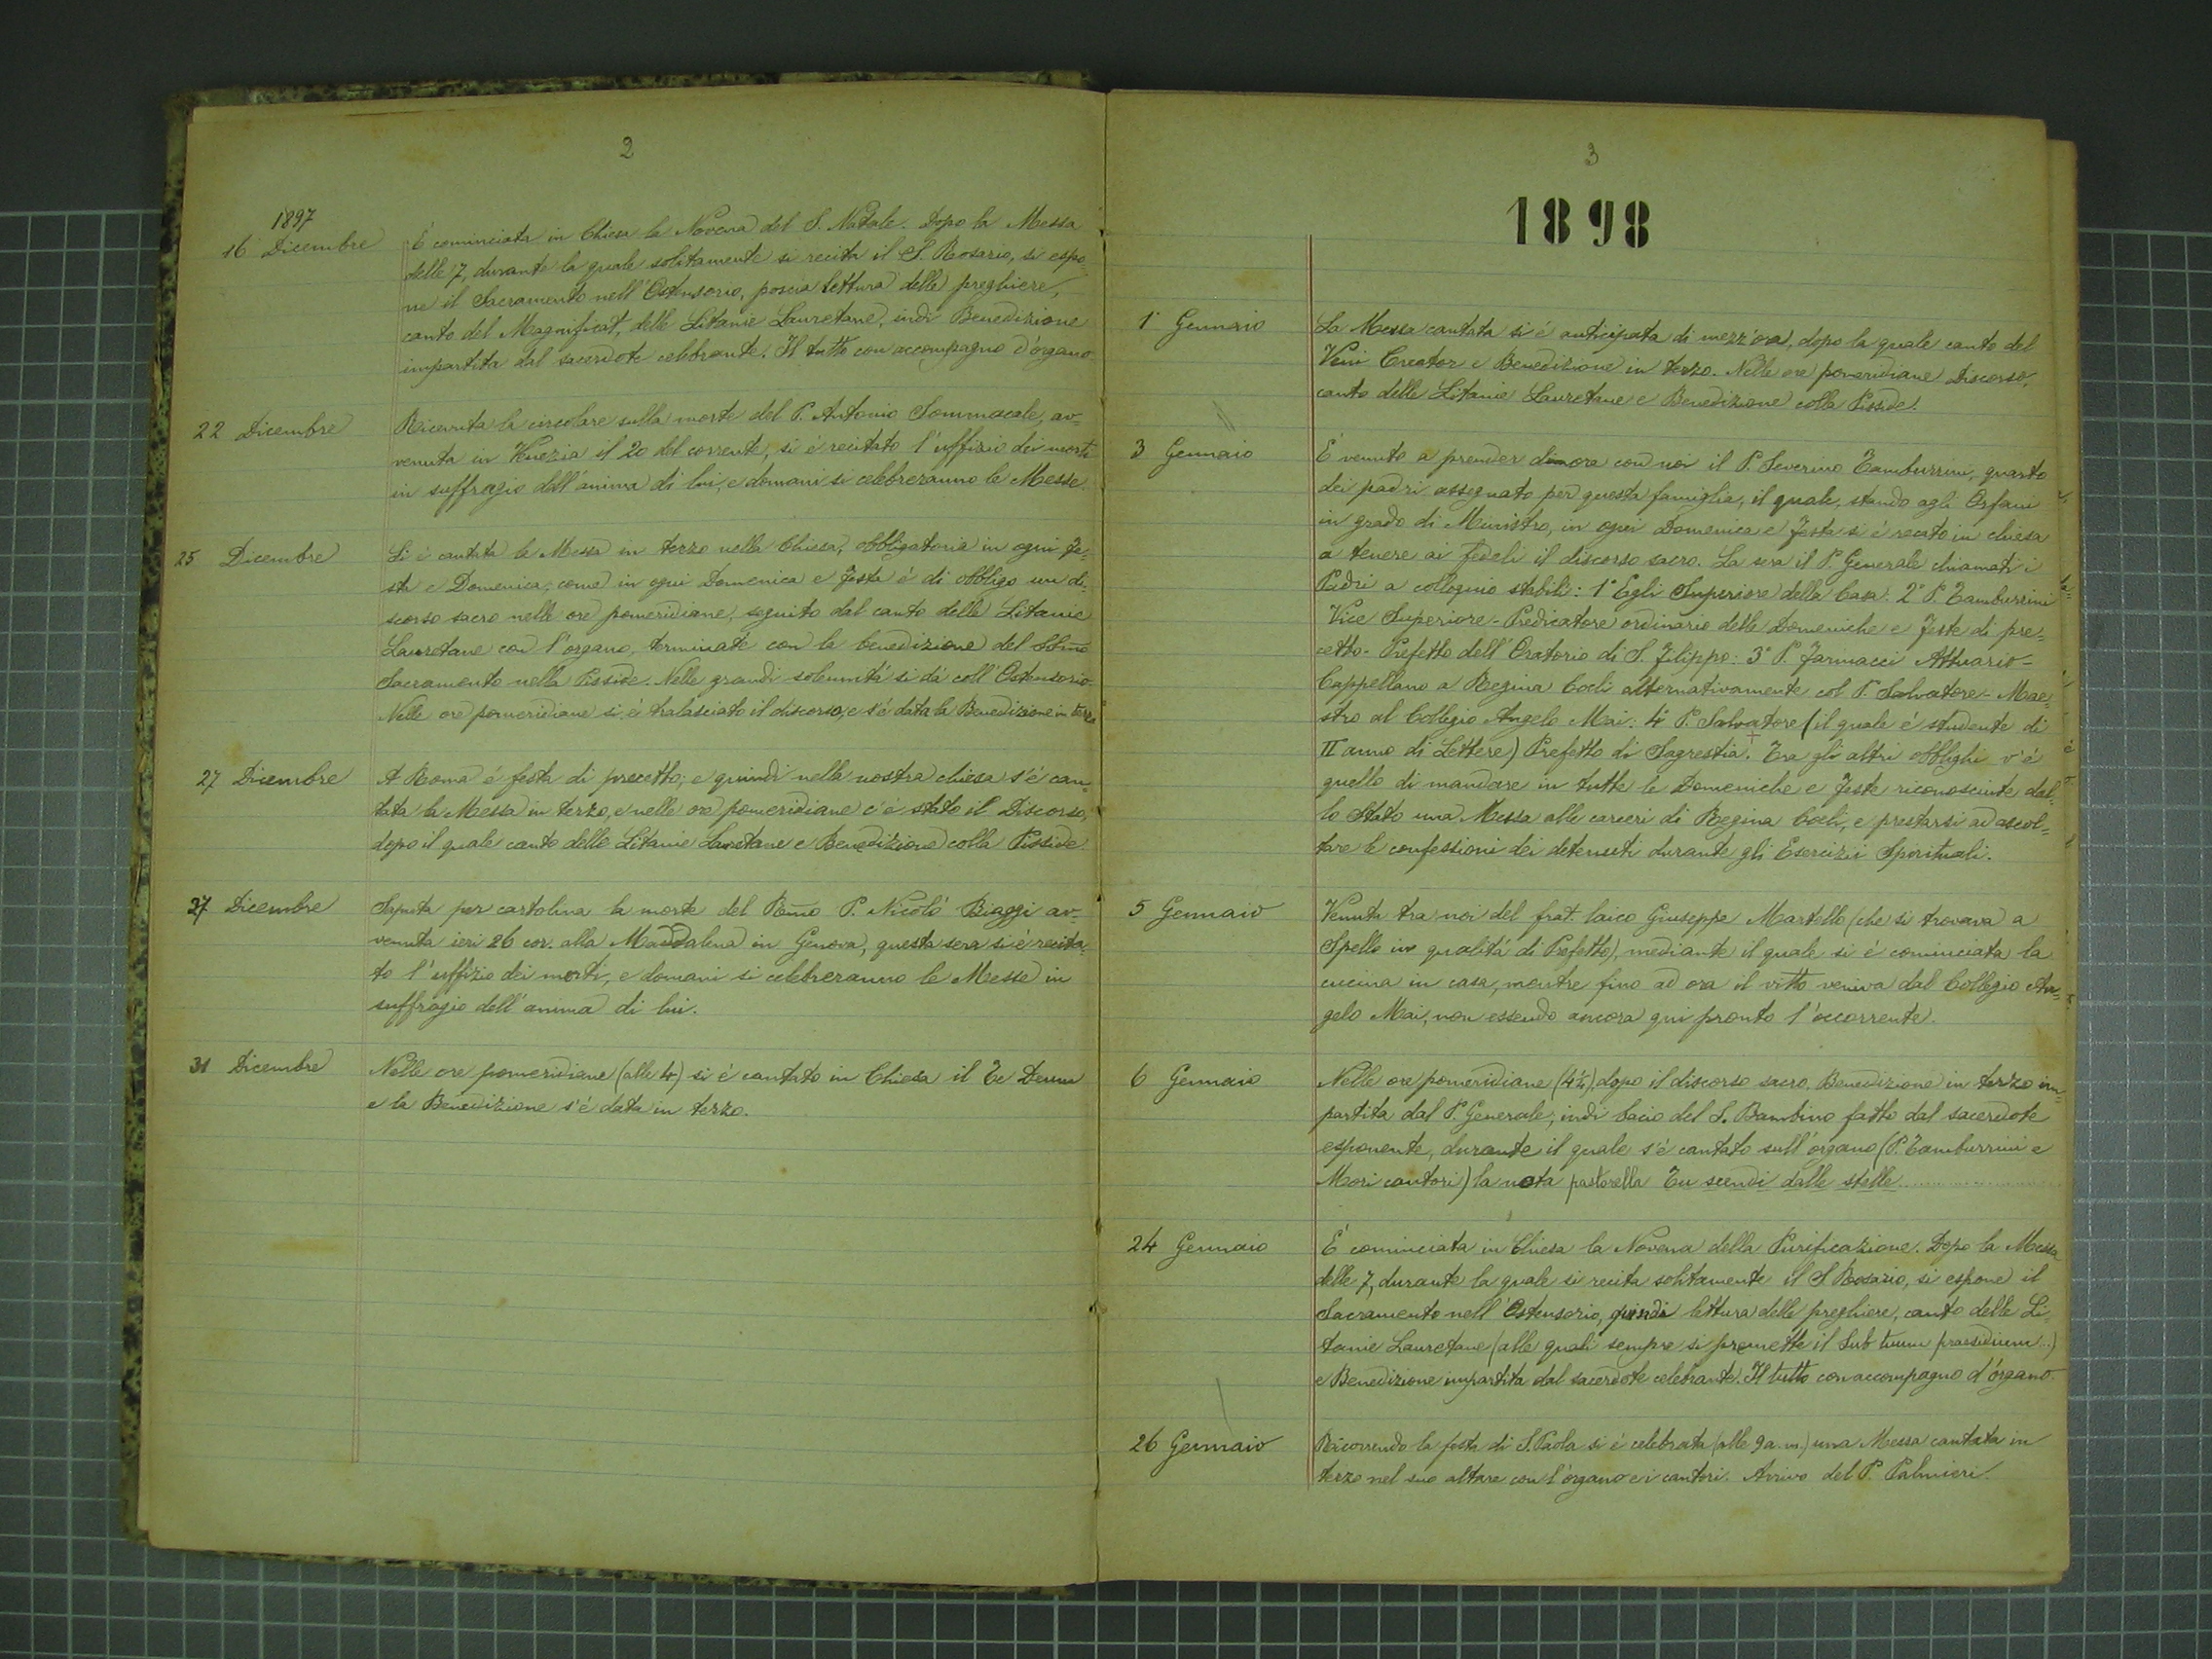 2
1897
16 Dicembre
È cominciata in Chiesa la Novena del S. Natale. Dopo la Messa
delle 7, durante la quale solitamente si recita il S. Rosario, si espo-
ne il Sacramento nell'Ostensorio, poscia lettura delle preghiere,
canto del Magnificat, delle Litanie Lauretane, indi Benedizione
impartita dal sacerdote celebrante. Il tutto con accompagno d'organo
22 Dicembre
Ricevuta la circolare sulla morte del P. Antonio Sommacale, av-
venuta in Venezia il 20 del corrente, si è recitato l'uffizio dei morti
in suffragio dell'anima di lui, e domani si celebreranno le Messe.
25 Dicembre
Si è cantata la Messa in terzo nella Chiesa, obbligatoria in ogni Fe-
sta e Domenica; come in ogni Domenica e Festa è di obbligo un di-
scorso sacro nelle ore pomeridiane, seguito dal canto delle Litanie
Lauretane con l'organo, terminate con la benedizione del
Sacramento nella Pisside. Nelle grandi solennità si dà coll'Ostensorio.
Nelle ore pomeridiane si è tralasciato il discorso, e s'è data la Benedizione in terzo
27 Dicembre
A Roma è festa di precetto; e quindi nella nostra chiesa s'è can-
tata la Messa in terzo, e nelle ore pomeridiane c'è stato il Discorso,
dopo il quale canto delle Litanie Lauretane e Benedizione colla Pisside.
27 Dicembre
Saputa per cartolina la morte del Rm̃o P. Nicolò Biaggi av-
venuta ieri 26 cor. alla Maddalena in Genova, questa sera si è recita-
to l'uffizio dei morti, e domani si celebreranno le Messe in
suffragio dell'anima di lui.
31 Dicembre
Nelle ore pomeridiane (alle 4) si è cantato in Chiesa il Te Deum
e la Benedizione s'è data in terzo.
3
1898
1° Gennaio
La Messa cantata si è anticipata di mezz'ora, dopo la quale canto del
Veni Creator e Benedizione in terzo. Nelle ore pomeridiane Discorso,
canto delle Litanie Lauretane e Benedizione colla Pisside.
3 Gennaio
È venuto a prender dimora con noi il P. Severino Tamburrini, quarto
dei padri assegnato per questa famiglia, il quale, stando agli Orfani
in grado di Ministro, in ogni Domenica e Festa si è recato in chiesa
a tenere ai fedeli il discorso sacro. La sera il P. Generale chiamati i
Padri a colloquio stabilì: 1° Egli Superiore della Casa. 2° P. Tamburrini
Vice Superiore - Predicatore ordinario delle Domeniche e Feste di pre-
cetto - Prefetto dell'Oratorio di S. Filippo: 3° P. Farinacci Attuario -
Cappellano a Regina Coeli alternativamente col P. Salvatore - Mae-
stro al Collegio Angelo Mai: 4° P. Salvatore (il quale è studente di
II anno di Lettere) Prefetto di Sagrestia. + Tra gli altri obblighi v'è
quello di mandare in tutte le Domeniche e Feste riconosciute dal-
lo Stato una Messa alle carceri di Regina Coeli, e prestarsi ad ascol-
tare le confessioni dei detenuti durante gli Esercizii Spirituali.
5 Gennaio
Venuta tra noi del frat. laico Giuseppe Martello (che si trovava a
Spello in qualità di Prefetto), mediante il quale si è cominciata la
cucina in casa, mentre fino ad ora il vitto veniva dal Collegio An-
gelo Mai, non essendo ancora qui pronto l'occorrente.
6 Gennaio
Nelle ore pomeridiane (4½), dopo il discorso sacro, Benedizione in terzo im-
partita dal P. Generale, indi bacio del S. Bambino fatto dal sacerdote
esponente, durante il quale s'è cantato sull'organo (P. Tamburrini e
Mori cantori) la nota pastorella Tu scendi dalle stelle
24 Gennaio
È cominciata in Chiesa la Novena della Purificazione. Dopo la Messa
delle 7, durante la quale si recita solitamente il S. Rosario, si espone il
Sacramento nell'Ostensorio, quindi lettura delle preghiere, canto delle Li-
tanie Lauretane (alle quali sempre si premette il Sub tuum praesidium...)
e Benedizione impartita dal sacerdote celebrante. Il tutto con accompagno d'organo.
26 Gennaio
Ricorrendo la festa di S. Paola si è celebrata (alle 9 a.m.) una Messa cantata in
terzo nel suo altare con l'organo e i cantori. Arrivo del P. Palmieri.